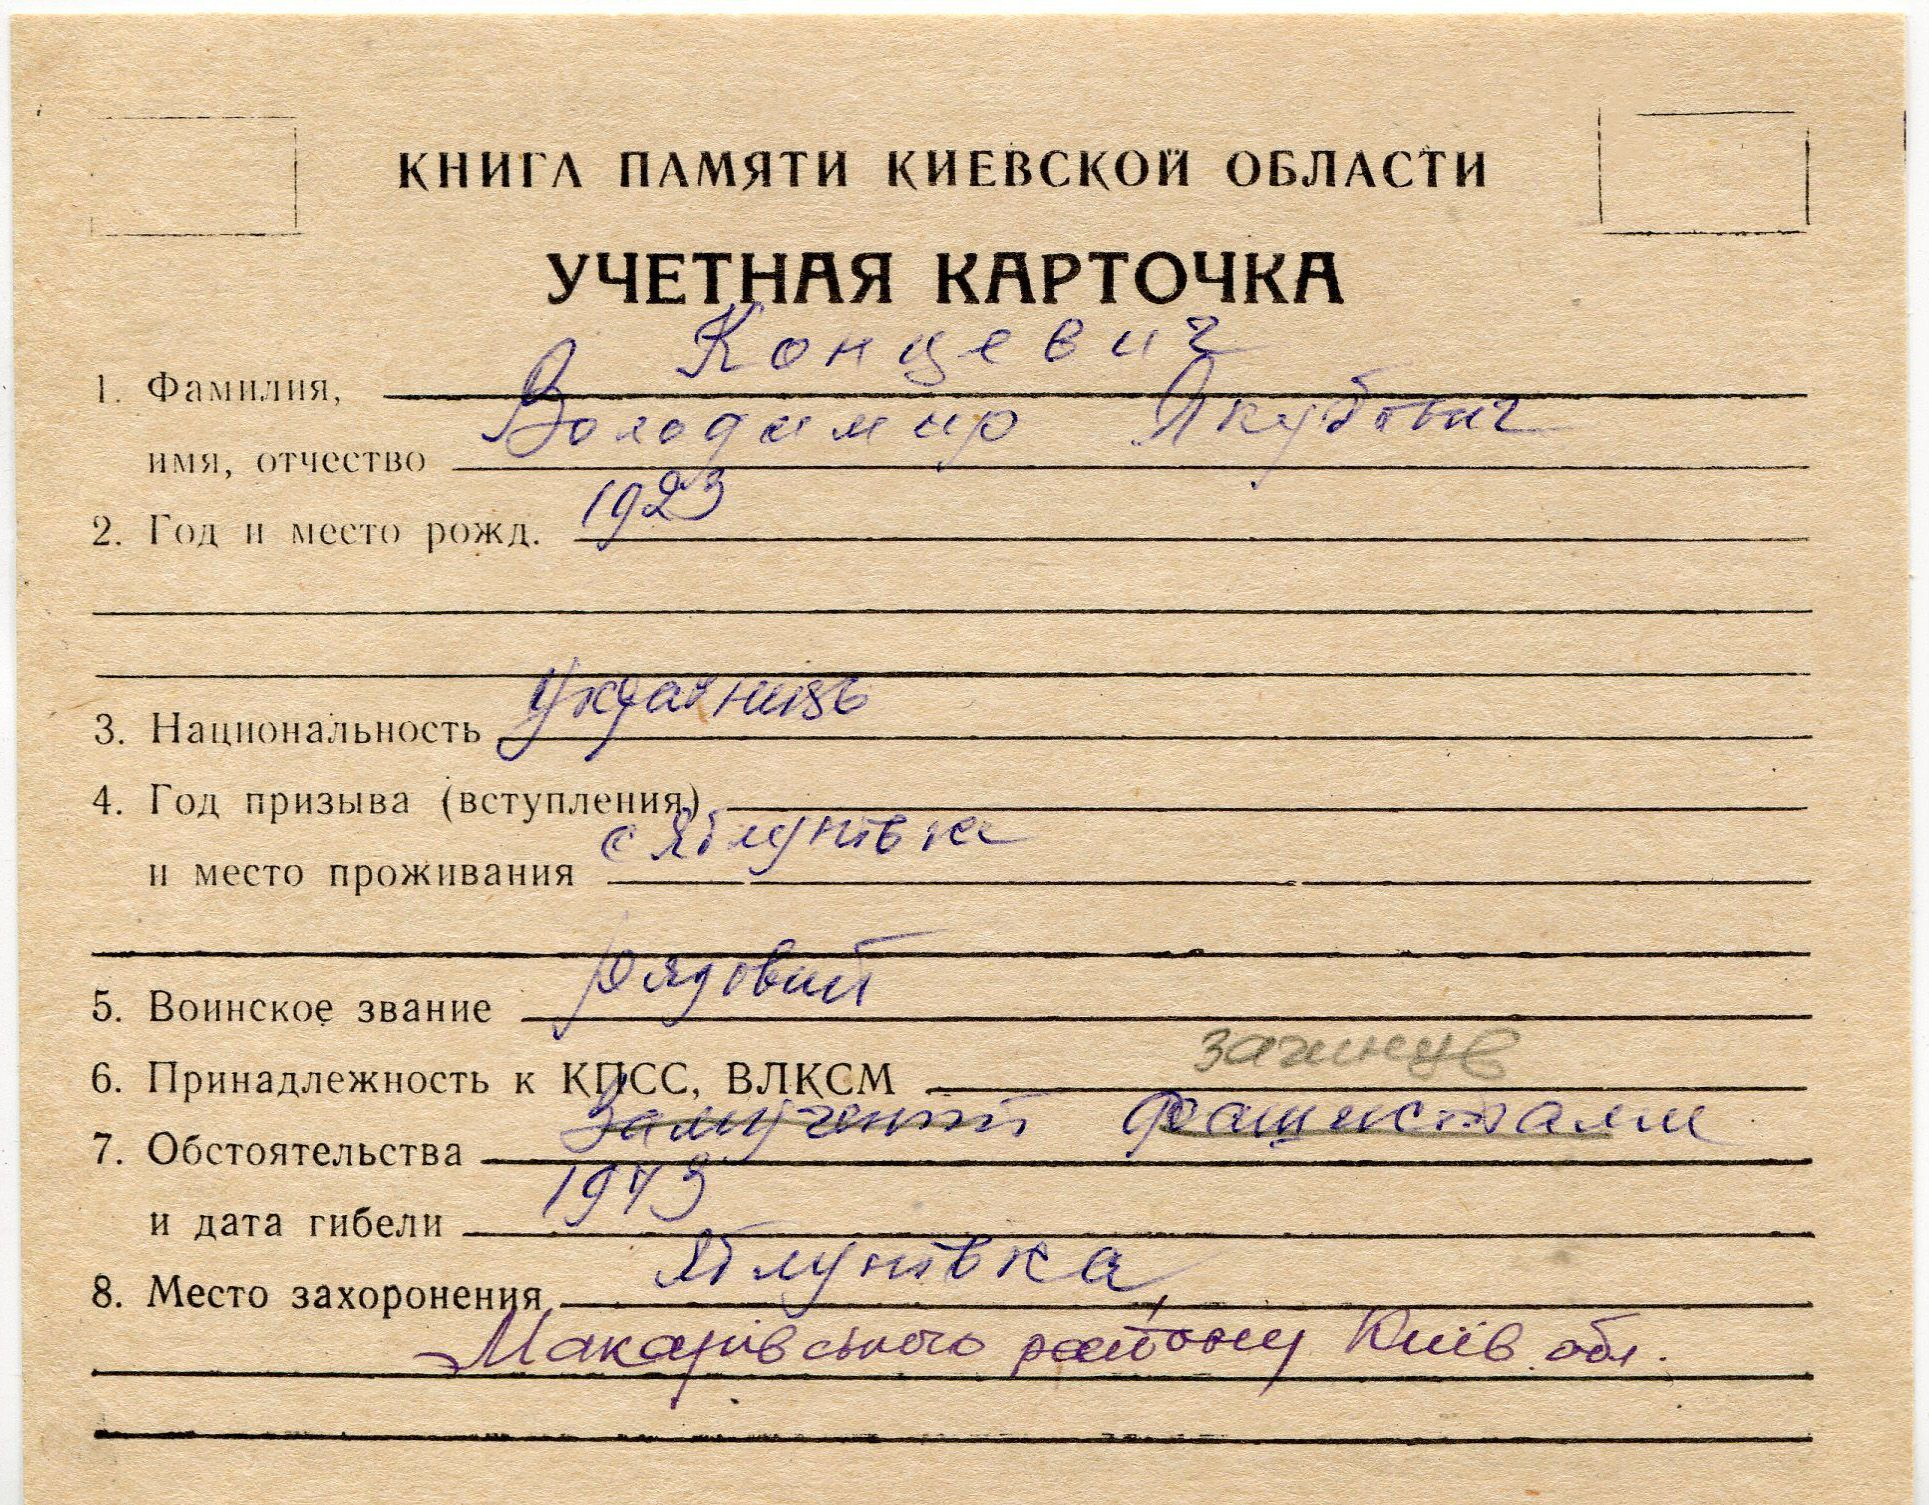 КНИГА ПАМЯТИ КИЕВСКОЙ ОБЛАСТИ
УЧЕТНАЯ КАРТОЧКА
1. Фамилия, Концевич
имя, отчество Володимир Якубович
2. Год и место рожд. 1923
3. Национальность Українець
4. Год призыва (вступления)
и место проживания с Яблунівка
5. Воинское звание рядовий
6. Принадлежность к КПСС, ВЛКСМ
7. Обстоятельства Замучений фашистами
и дата гибели 1943
8. Место захоронения Яблунівка
Макарівського району Київ. обл.